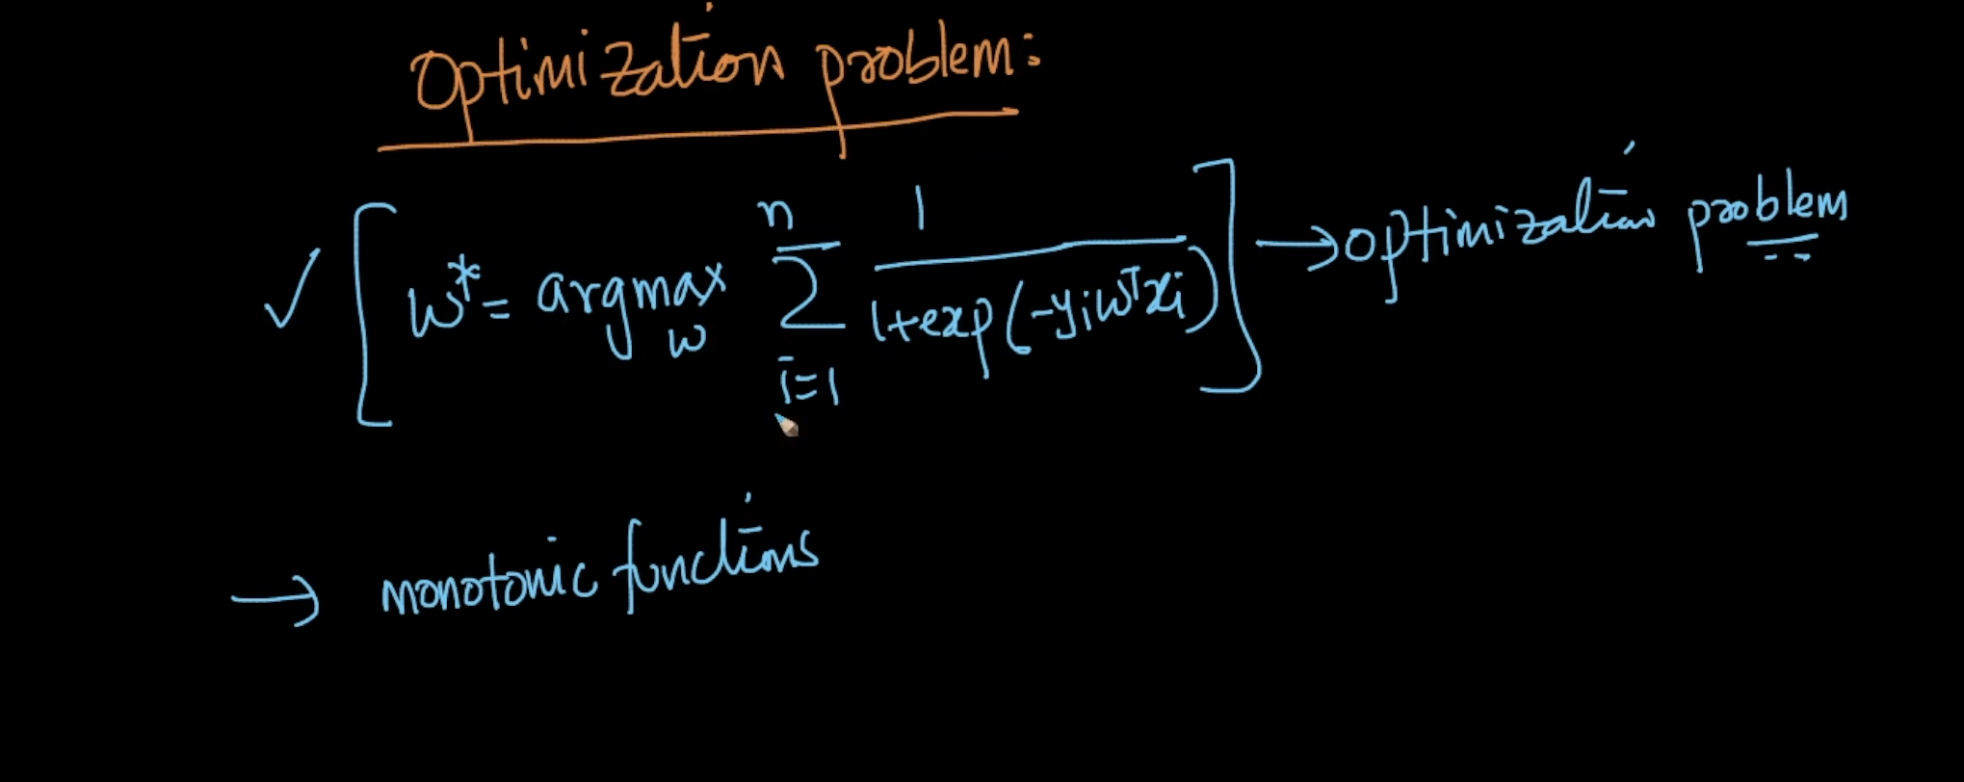 Optimization problem:
✓ [ w* = argmax_w Σ_{i=1}^{n} 1 / (1+exp(-y_i w^T x_i)) ] → optimization problem
→ monotonic functions